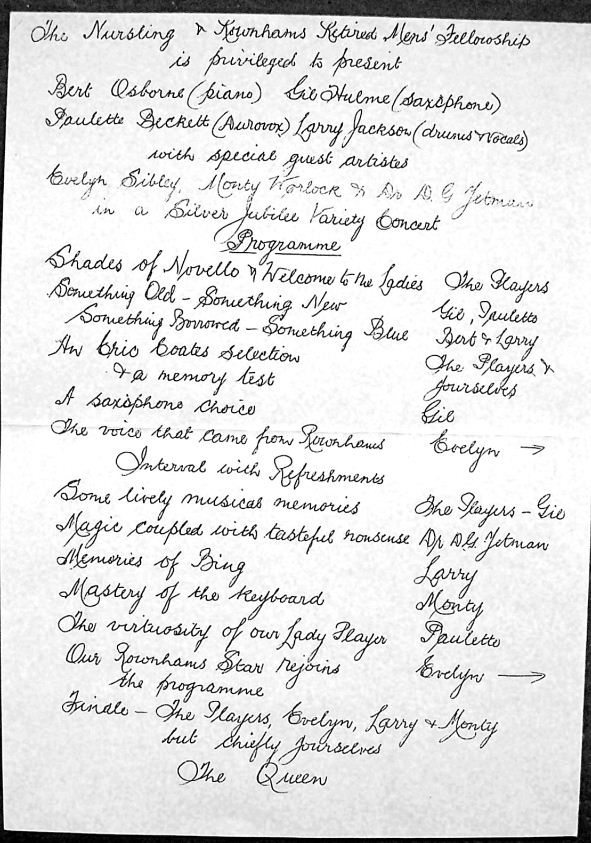 The Nursling & Rownhams Retired Mens' Fellowship
is privileged to present
Bert Osborne (piano) Gil Hulme (saxophone)
Paulette Beckett (Aurovox) Larry Jackson (drums & Vocals)
with special guest artistes
Evelyn Sibley, Monty Worlock & Dr D. G. Yetman
in a Silver Jubilee Variety Concert
Programme
Shades of Novello & Welcome to the Ladies The Players
Something Old - Something New Gil, Paulette
Something Borrowed - Something Blue Bert & Larry
An Eric Coates selection The Players &
& a memory test Yourselves
A saxophone choice Gil
The voice that came from Rownhams Evelyn →
Interval with Refreshments
Some lively musical memories The Players - Gil
Magic coupled with tasteful nonsense Dr D.G. Yetman
Memories of Bing Larry
Mastery of the keyboard Monty
The virtuosity of our Lady Player Paulette
Our Rownhams Star rejoins Evelyn →
the programme
Finale - The Players, Evelyn, Larry & Monty
but chiefly Yourselves
The Queen